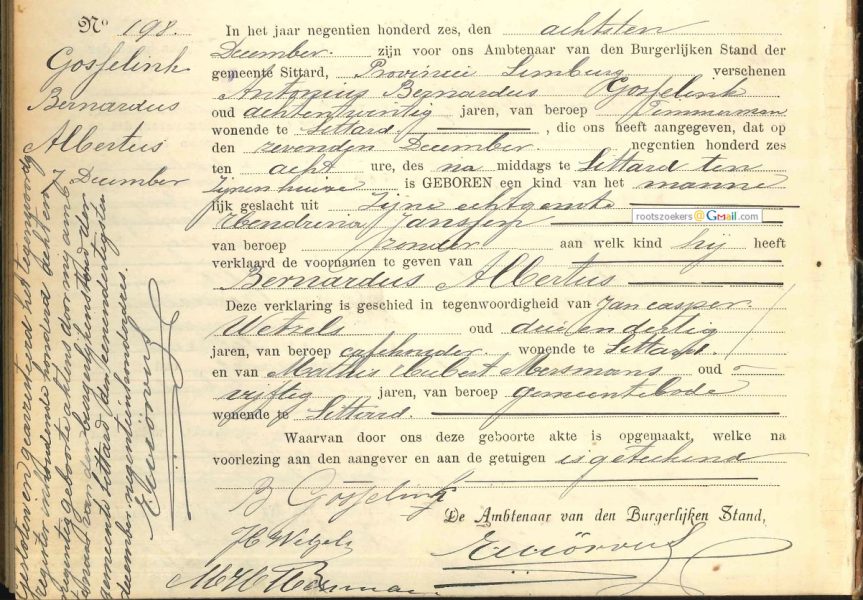 No 198.
Gosselink
Bernardus
Albertus
7 December
In het jaar negentien honderd zes, den achtsten
December. zijn voor ons Ambtenaar van den Burgerlijken Stand der
gemeente Sittard, Provincie Limburg verschenen
Antonius Bernardus Gosselink
oud achtentwintig jaren, van beroep Timmerman
wonende te Sittard, die ons heeft aangegeven, dat op
den zevenden December. negentien honderd zes
ten acht ure, des na middags te Sittard ten
zijnen huize is GEBOREN een kind van het manne
lijk geslacht uit zijne echtgenoote
Hendrina Janssen
rootszoekers@Gmail.com
van beroep zonder aan welk kind hij heeft
verklaard de voornamen te geven van
Bernardus Albertus
Deze verklaring is geschied in tegenwoordigheid van Jan casper
Wetzels oud drieendertig
jaren, van beroep cafehouder wonende te Sittard.
en van Mathis Hubert Mersmans oud
vijftig jaren, van beroep gemeentebode
wonende te Sittard.
Waarvan door ons deze geboorte akte is opgemaakt, welke na
voorlezing aan den aangever en aan de getuigen is geteekend
B Gosselink
De Ambtenaar van den Burgerlijken Stand,
JC Wetzels
Gesloten en gearresteerd het tegenwoordig
register inhoudende honderd achten
negentig geboorte aktens door mij amb
tenaar van den burgerlijken stand der
gemeente Sittard den eenendertigsten
december negentienhonderdzes.